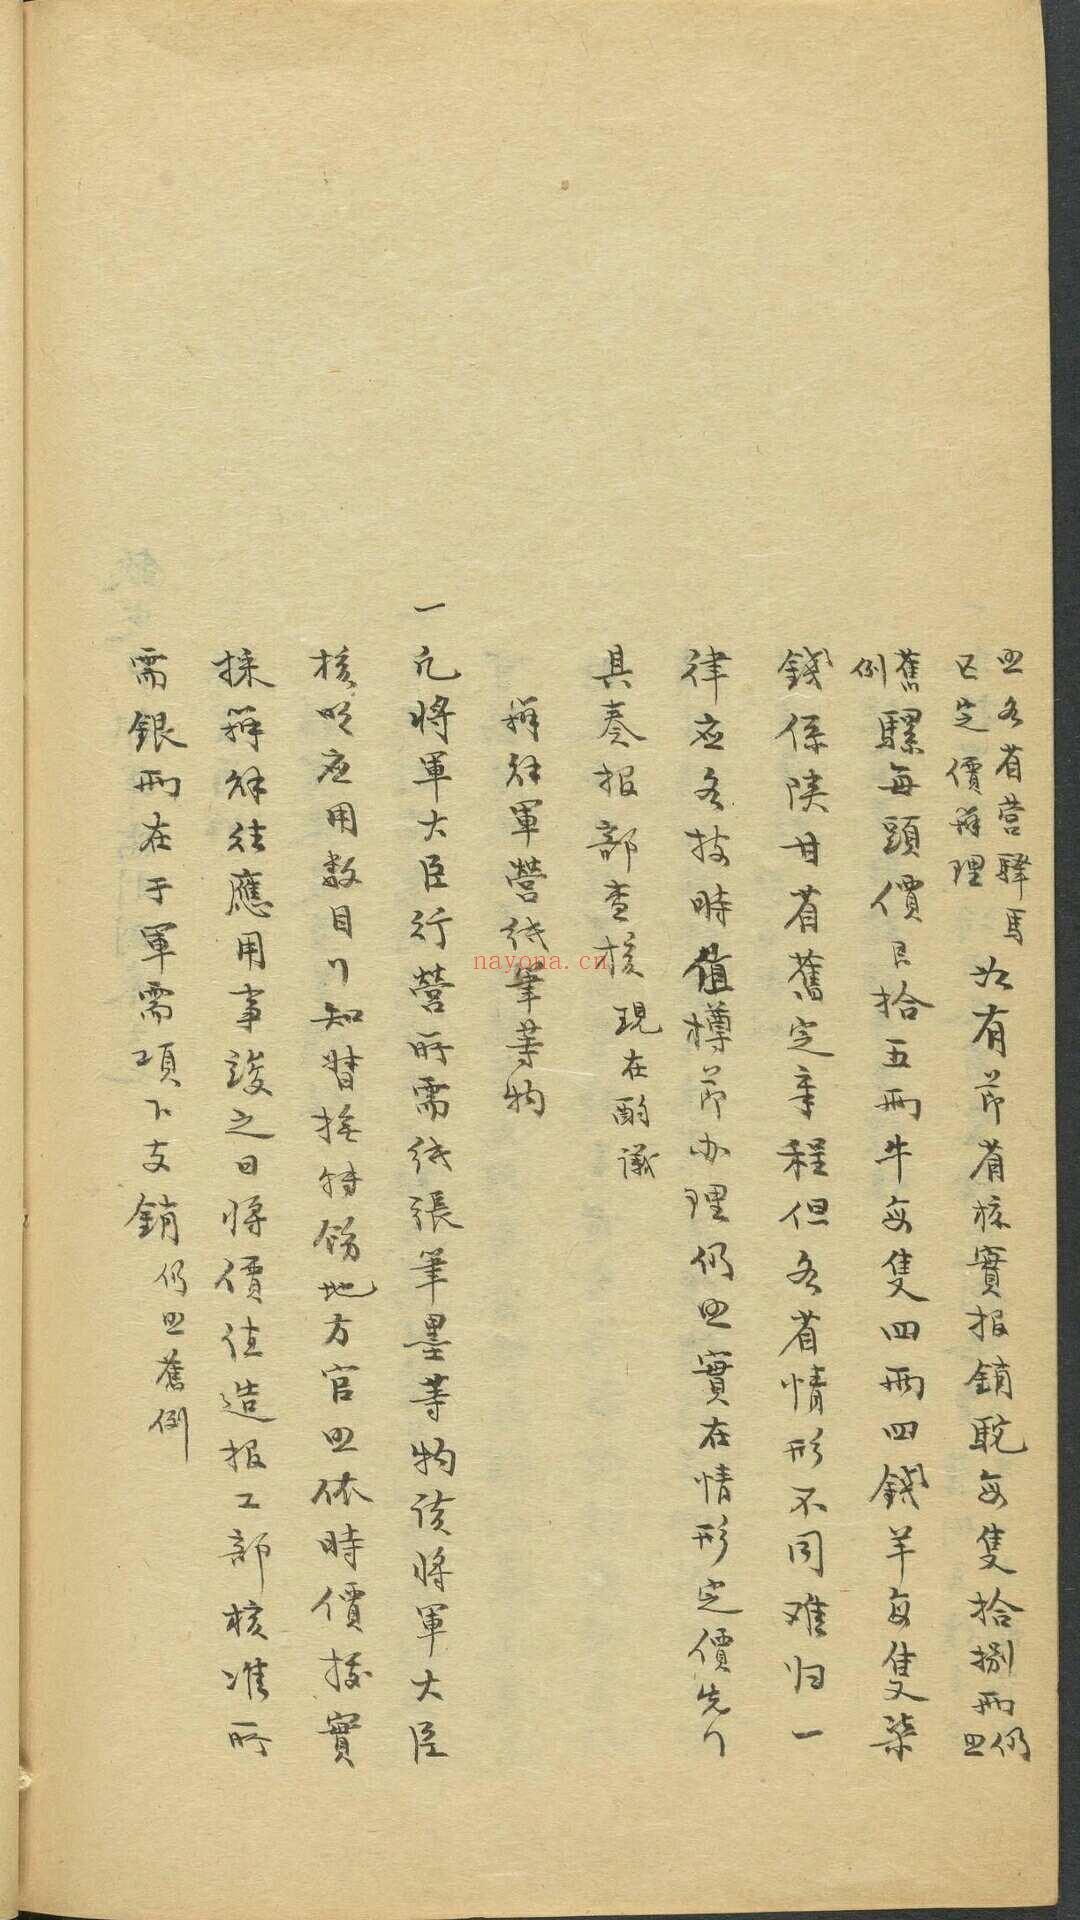 照各省营驛馬
已定價辦理
如有節省核實报銷駝每隻拾捌兩仍照
舊例騾每頭價艮拾五兩牛每隻四兩四錢羊每隻柒
錢係陕甘省舊定章程但各省情形不同难归一
律应各按時值樽节办理仍照實在情形定價先行
具奏报部查核現在酌議
辦解軍營纸筆等物
一凢將軍大臣行營所需纸張筆墨等物该將軍大臣
核明应用数目行知督撫轉飭地方官照依時價按實
採辦解往應用事竣之日將價值造报工部核准所
需銀兩在于軍需項下支銷仍照舊例
nayona.cn